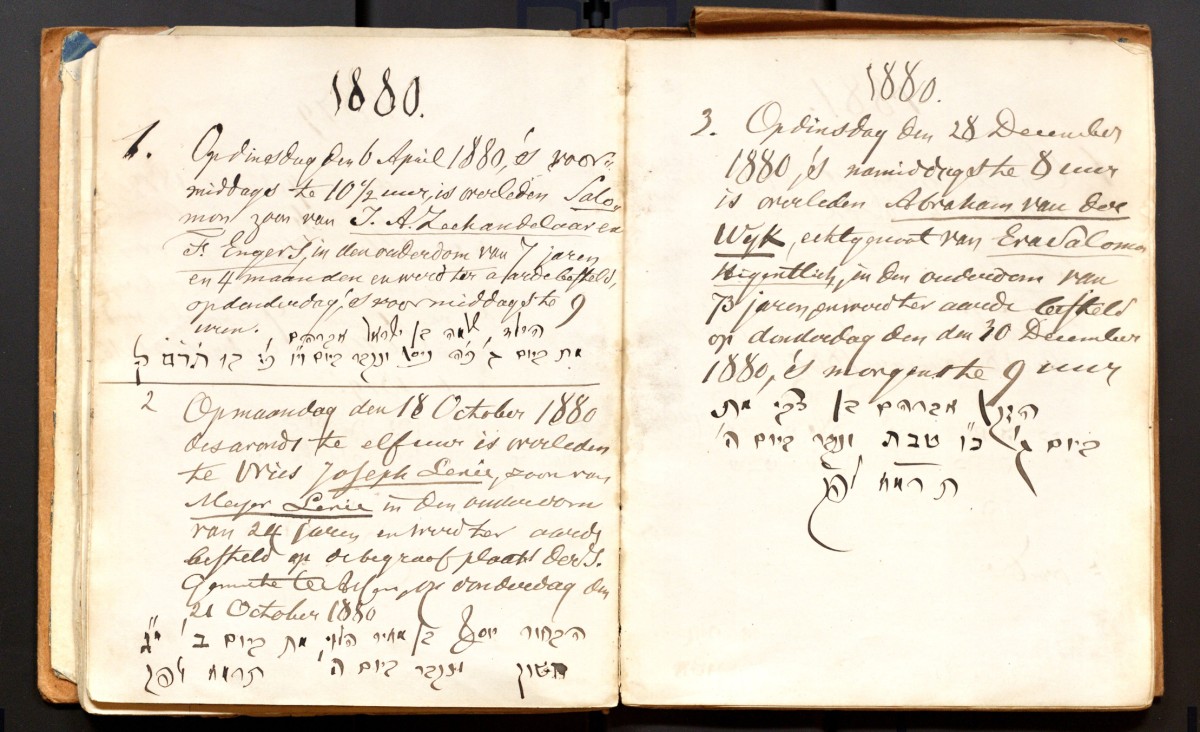 1880.
1. Op dinsdag den 6 April 1880, 's voor-
middags te 10½ uur, is overleden Salo-
mon zoon van I. A. Leehandelaar en
F. Engers, in den ouderdom van 7 jaren
en 4 maanden en werd ter aarde besteld,
op donderdag, 's voormiddags te 9
uren.
הילד שלמה בן ישראל אברהם
מת ביום ג' כ"ה ניסן ונקבר ביום
2 Op maandag den 18 October 1880
des avonds te elf uur is overleden
te Vries Joseph Levie, zoon van
Meyer Levie in den ouderdom
van 24 jaren en werd ter aarde
besteld op de begraafplaats der I.
Gemeente te op donderdag den
21 October 1880
הבחור יוסף בן מאיר הלוי מת ביום ב' י"ג
חשון ונקבר ביום ה' תרמא לפק
1880.
3. Op dinsdag den 28 December
1880, 's namiddags te 8 uur
is overleden Abraham van der
Wyk, echtgenoot van Eva Salomon
in den ouderdom van
73 jaren, en werd ter aarde besteld
op donderdag den dm 30 December
1880, 's morgens te 9 uur
אברהם בן מת
ביום ג' כ"ו טבת ונקבר ביום ה'
תרמא לפק